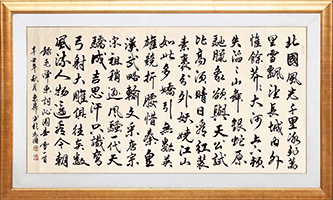 北國風光千里冰封萬
里雪飄望長城內外
惟餘莽莽大河上下頓
失滔滔山舞銀蛇原
馳臘象欲與天公試
比高須晴日看紅裝
素裹分外妖嬈江山
如此多嬌引無數英
雄競折腰惜秦皇
漢武略輸文采唐宗
宋祖稍遜風騷一代天
驕成吉思汗只識彎
弓射大雕俱往矣數
風流人物還看今朝
錄毛澤東詞沁園春雪一首
辛丑年秋月